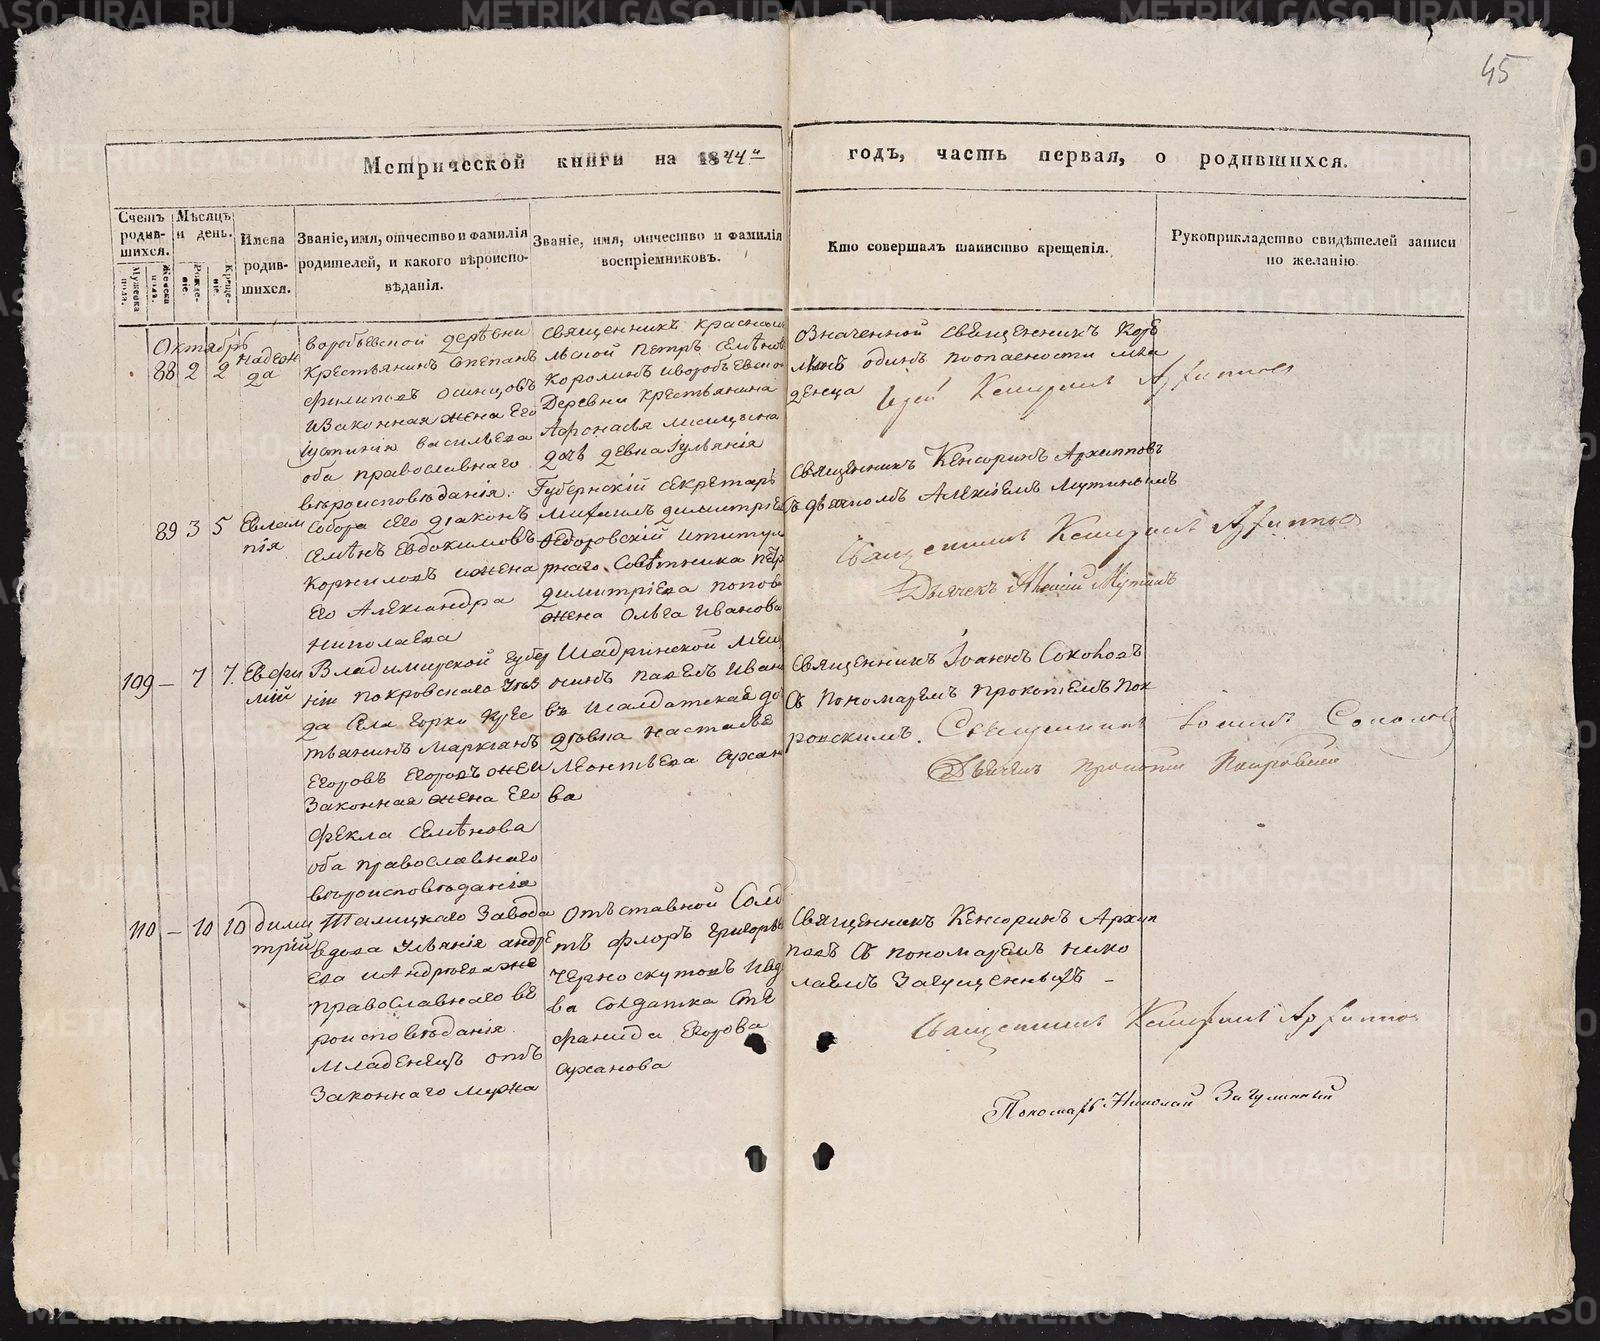 45
Метрической книги на 1844й годъ, часть первая, о родившихся.
Счетъ родившихся.
Мужеска пола.
Женска пола.
Мѣсяцъ и день.
Рожденіе.
Крещеніе.
Имена родившихся.
Званіе, имя, отчество и фамилія родителей, и какого вѣроисповѣданія.
Званіе, имя, отчество и фамилія воспріемниковъ.
Кто совершалъ таинство крещенія.
Рукоприкладство свидѣтелей записи по желанію.
Октябрь
88 2 2 Надеж
да
Воробьевской деревни
крестьянинъ Степанъ
Филиповъ Осинцовъ
и законная жена его
Іустинія Васильева
оба православнаго
вѣроисповѣданія.
Священникъ
Петръ
деревни крестьянина
дочь девка Іульянія
означенной священникъ
одинъ поопасности мла
денца
89 3 5 Евлам
пія
Собора сего діаконъ
Семѣнъ Евдокимовъ
Корниловъ и жена
его Александра
Николаева
Губернскій секретарь
Михаилъ Димитріев
Федоровскій и титул
рнаго Совѣтника Петр
Димитріева Попова
жена Ольга Иванова
Священникъ Кенсоринъ Архиповъ
съ дьячкомъ Алексіемъ Мутинымъ
Священникъ Кенсоринъ Архиповъ
Дьячекъ Алексій Мутинъ
109 — 7 7. Евфи
мій
Владимирской губер
ніи Покровскаго уѣз
да села Горки кре
тьянинъ Маркіанъ
Егоровъ Егоровъ
законная жена его
Фекла Семѣнова
оба православнаго
вѣроисповѣданія
Шадринской мещ
анинъ Павелъ Иван
въ и салдатская до
Леонтьева Сухан
ва
Священникъ Іоаннъ Соколовъ
съ пономаремъ Прокопіемъ Пок
ровскимъ.
Священникъ Іоаннъ Соколовъ
Прокопій Покровскій
110 — 10 10 Дими
трій
Талицкаго завода
вдова Ульянія Андре
ева
православнаго ве
роисповѣданія
младенецъ отъ
законнаго мужа
Отъставной солд
тъ Флоръ Григорьев
Черноскутовъ и вд
ва солдатка Сте
фанида Егорова
Суханова
Священникъ Кенсоринъ Архип
повъ съ пономаремъ Нико
лаемъ
Священникъ Кенсоринъ Архиповъ
Пономарь Николай